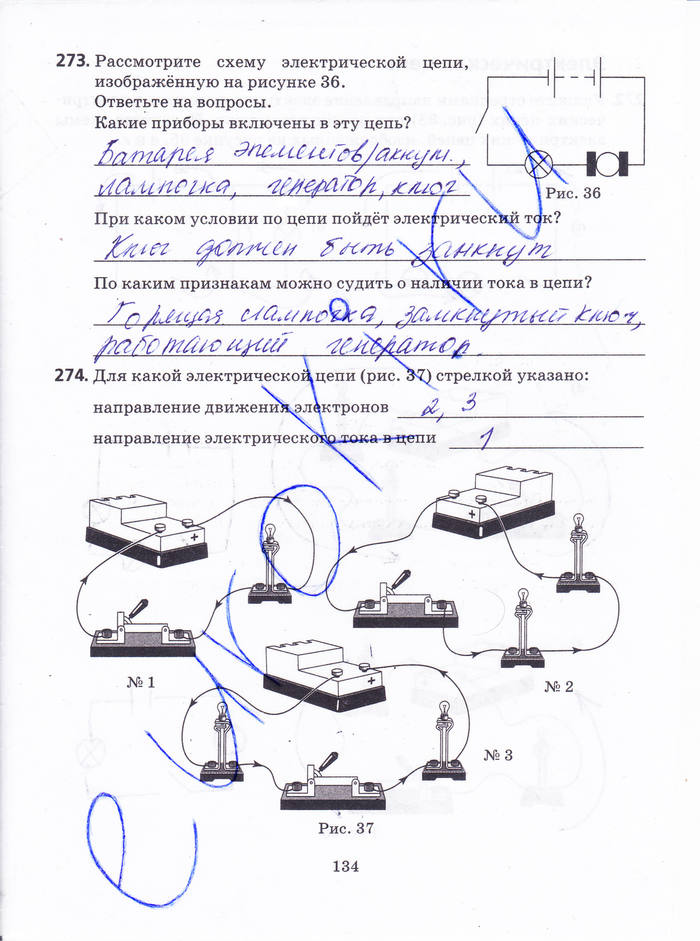 273. Рассмотрите схему электрической цепи,
изображённую на рисунке 36.
Ответьте на вопросы.
Какие приборы включены в эту цепь?
Батарея элементов/аккум.,
лампочка, генератор, ключ
Рис. 36
При каком условии по цепи пойдёт электрический ток?
Ключ должен быть замкнут
По каким признакам можно судить о наличии тока в цепи?
Горящая лампочка, замкнутый ключ,
работающий генератор.
274. Для какой электрической цепи (рис. 37) стрелкой указано:
направление движения электронов 2, 3
направление электрического тока в цепи 1
№ 1
№ 2
№ 3
Рис. 37
134